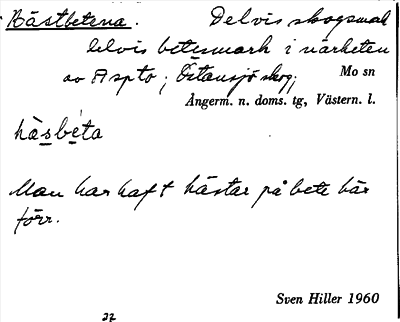 Hästbetena. Delvis skogsmark
delvis betesmark i närheten
av Aspto; Östansjö skog; Mo sn
Ångerm. n. doms. tg, Västern. l.
hàsbéta
Man har haft hästar på bete här
förr.
Sven Hiller 1960
27